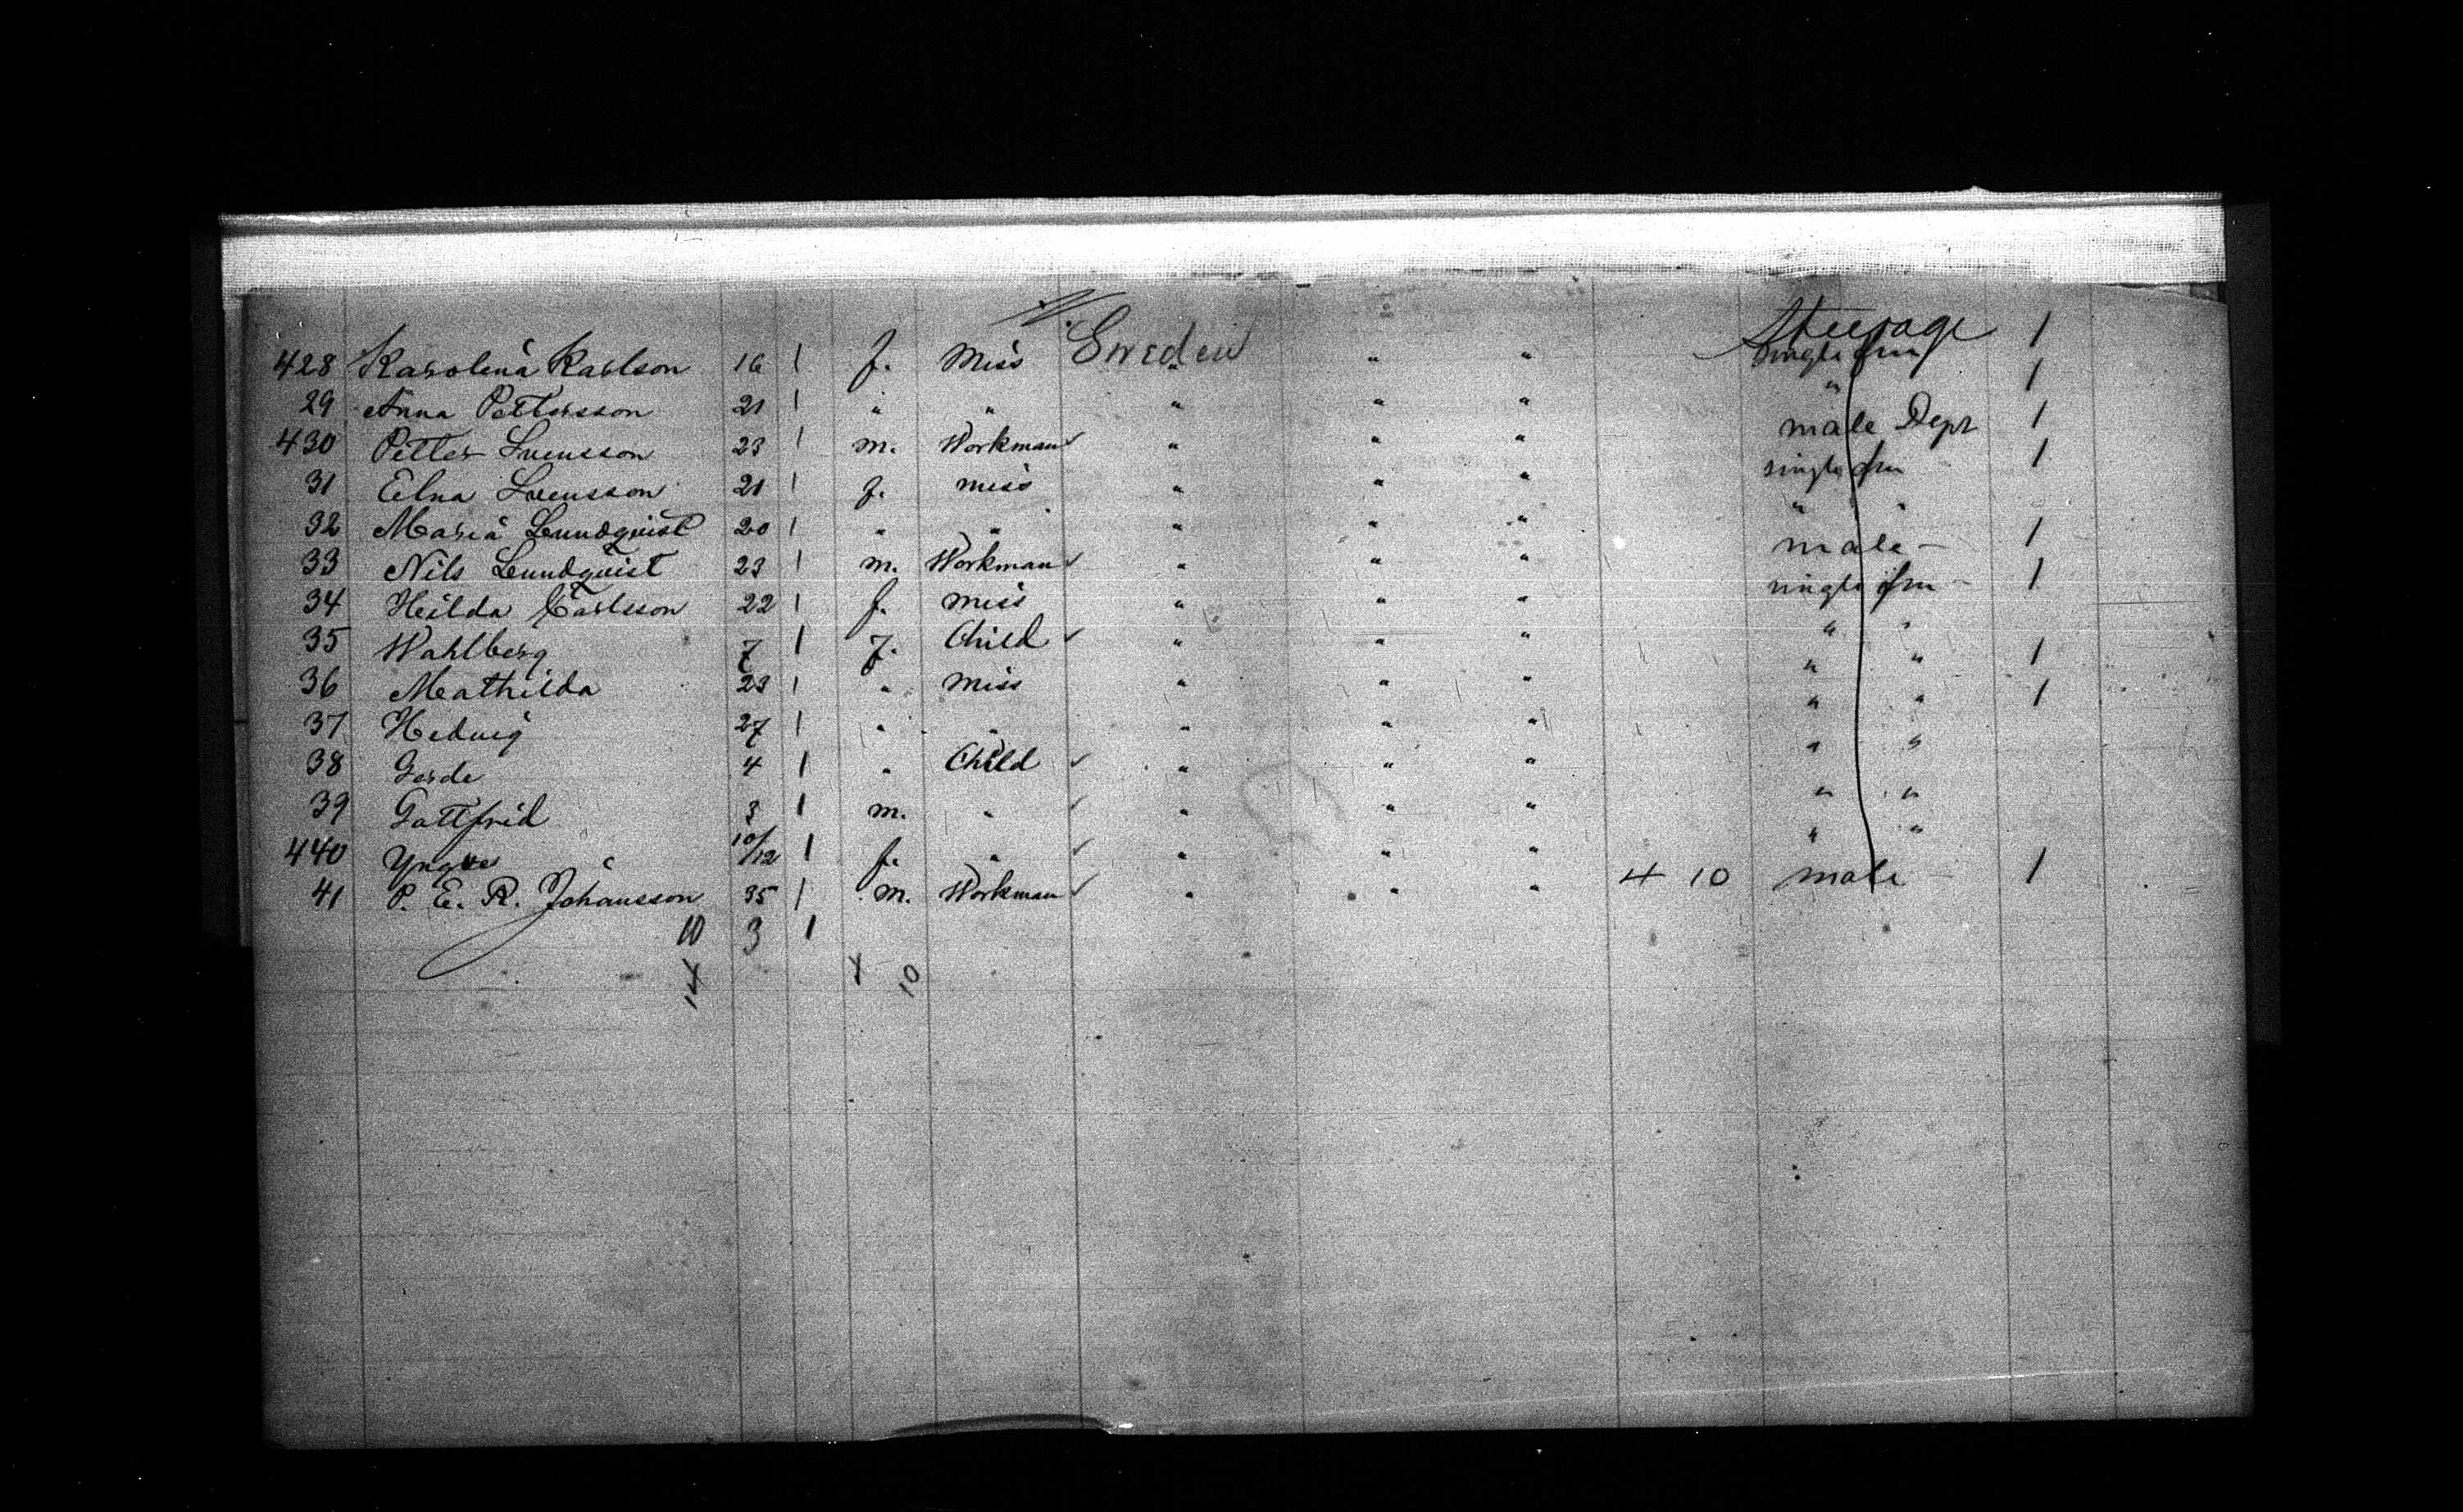 Steerage 1
428 Karolina Karlson 16 1 f. Miss Sweden " " " single fem 1
29 Anna Pettersson 21 1 " " " " " " 1
430 Petter Svensson 23 1 m. Workman ✓ " " " male Dept 1
31 Elna Svensson 21 1 f. miss " " " single fem 1
32 Maria Lundquist 20 1 " " " " " " "
33 Nils Lundquist 23 1 m. Workman ✓ " " " male — 1
34 Hilda Carlsson 22 1 f. miss " " " single fem — 1
35 Wahlberg 7 1 f. Child ✓ " " " " "
36 Mathilda 23 1 " Miss " " " " " 1
37 Hedwig 27 1 " " " " " " " 1
38 Gerde 4 1 " Child ✓ " " " " "
39 Gottfrid 3 1 m. " ✓ " " " " "
440 Yngve 10/12 1 f. " ✓ " " " " "
41 P. E. R. Johansson 35 1 m. Workman ✓ " " " 4 10 male — 1
10 3 1
14 4 10